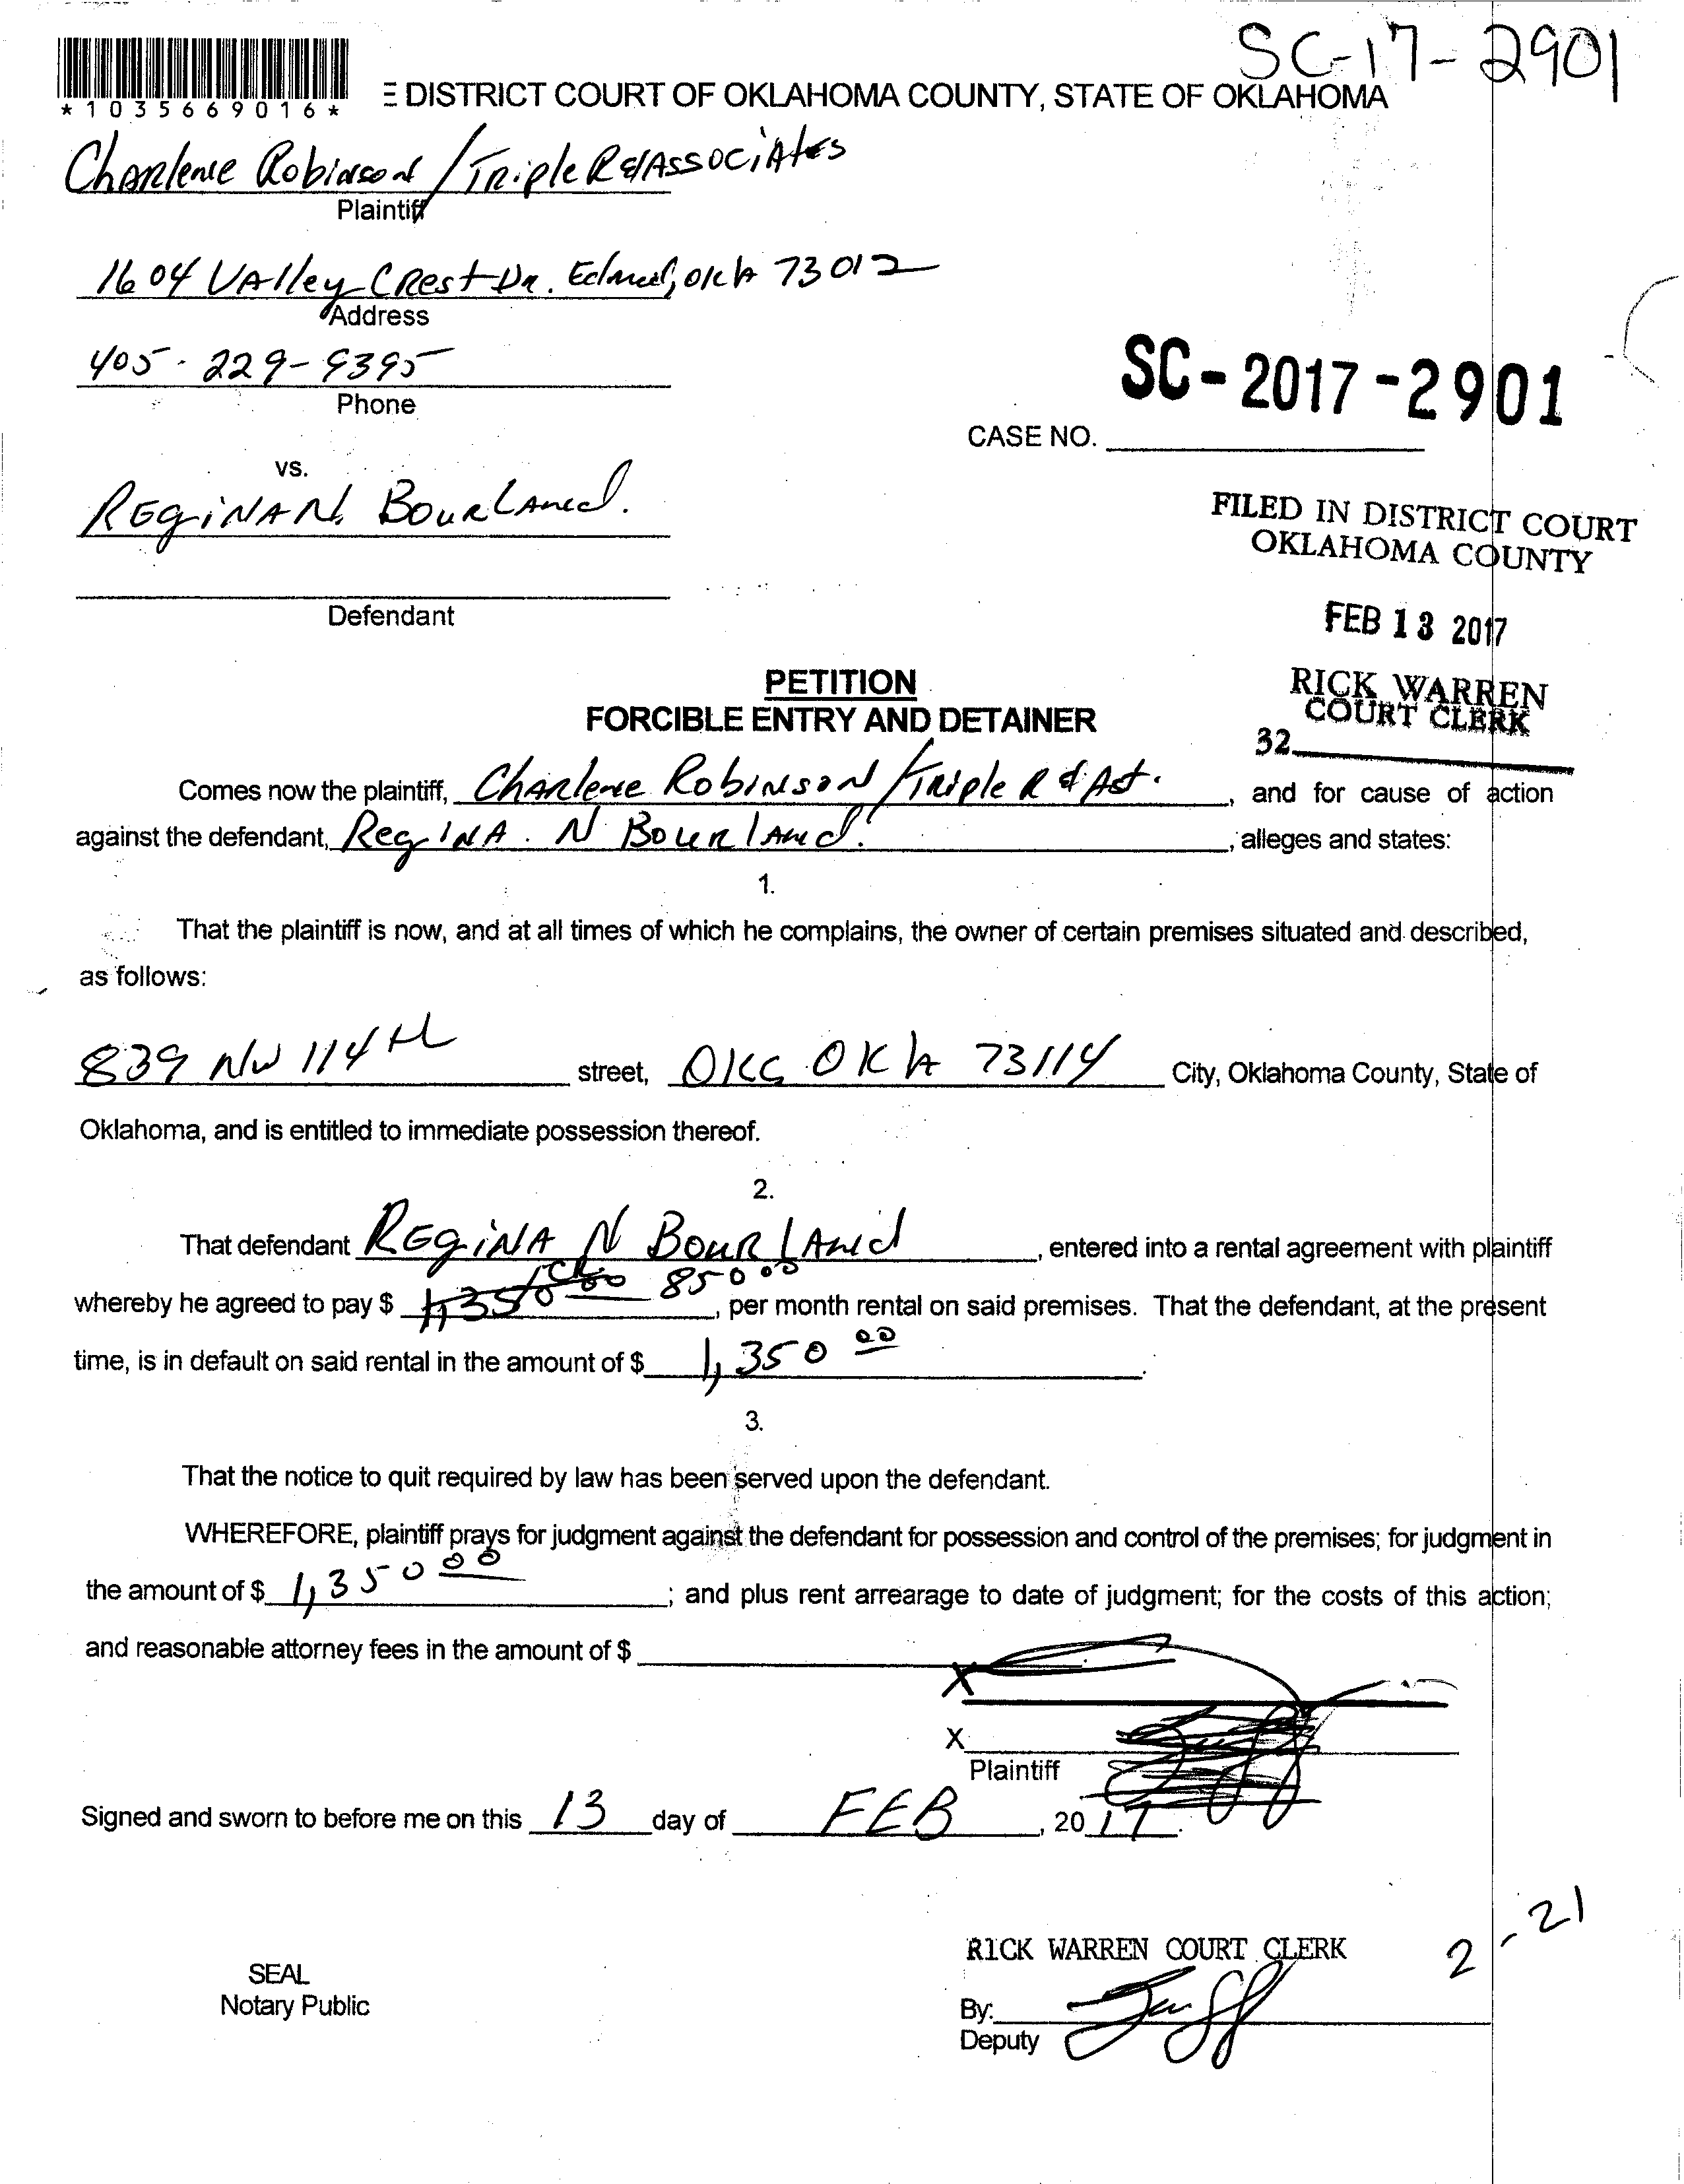 SC-17-2901
*1035669016*
E DISTRICT COURT OF OKLAHOMA COUNTY, STATE OF OKLAHOMA
Charlene Robinson / Triple R & Associates
Plaintiff
1604 Valley Crest Dr. Edmond, Okla 73012
Address
405-229-9395
Phone
SC-2017-2901
CASE NO.
vs.
Regina N. Bourland.
FILED IN DISTRICT COURT
OKLAHOMA COUNTY
Defendant
FEB 13 2017
PETITION
FORCIBLE ENTRY AND DETAINER
RICK WARREN
COURT CLERK
32
Comes now the plaintiff, Charlene Robinson / Triple R & Ast. , and for cause of action
against the defendant, Regina. N Bourland. , alleges and states:
1.
That the plaintiff is now, and at all times of which he complains, the owner of certain premises situated and described,
as follows:
839 NW 114th street, OKC OKla 73114 City, Oklahoma County, State of
Oklahoma, and is entitled to immediate possession thereof.
2.
That defendant Regina N Bourland , entered into a rental agreement with plaintiff
whereby he agreed to pay $ 1,350 00 850 00 , per month rental on said premises. That the defendant, at the present
time, is in default on said rental in the amount of $ 1,350 00 .
3.
That the notice to quit required by law has been served upon the defendant.
WHEREFORE, plaintiff prays for judgment against the defendant for possession and control of the premises; for judgment in
the amount of $ 1,350 00 ; and plus rent arrearage to date of judgment; for the costs of this action;
and reasonable attorney fees in the amount of $ .
X
X
Plaintiff
Signed and sworn to before me on this 13 day of FEB , 20 17 .
2-21
RICK WARREN COURT CLERK
SEAL
Notary Public
By:
Deputy